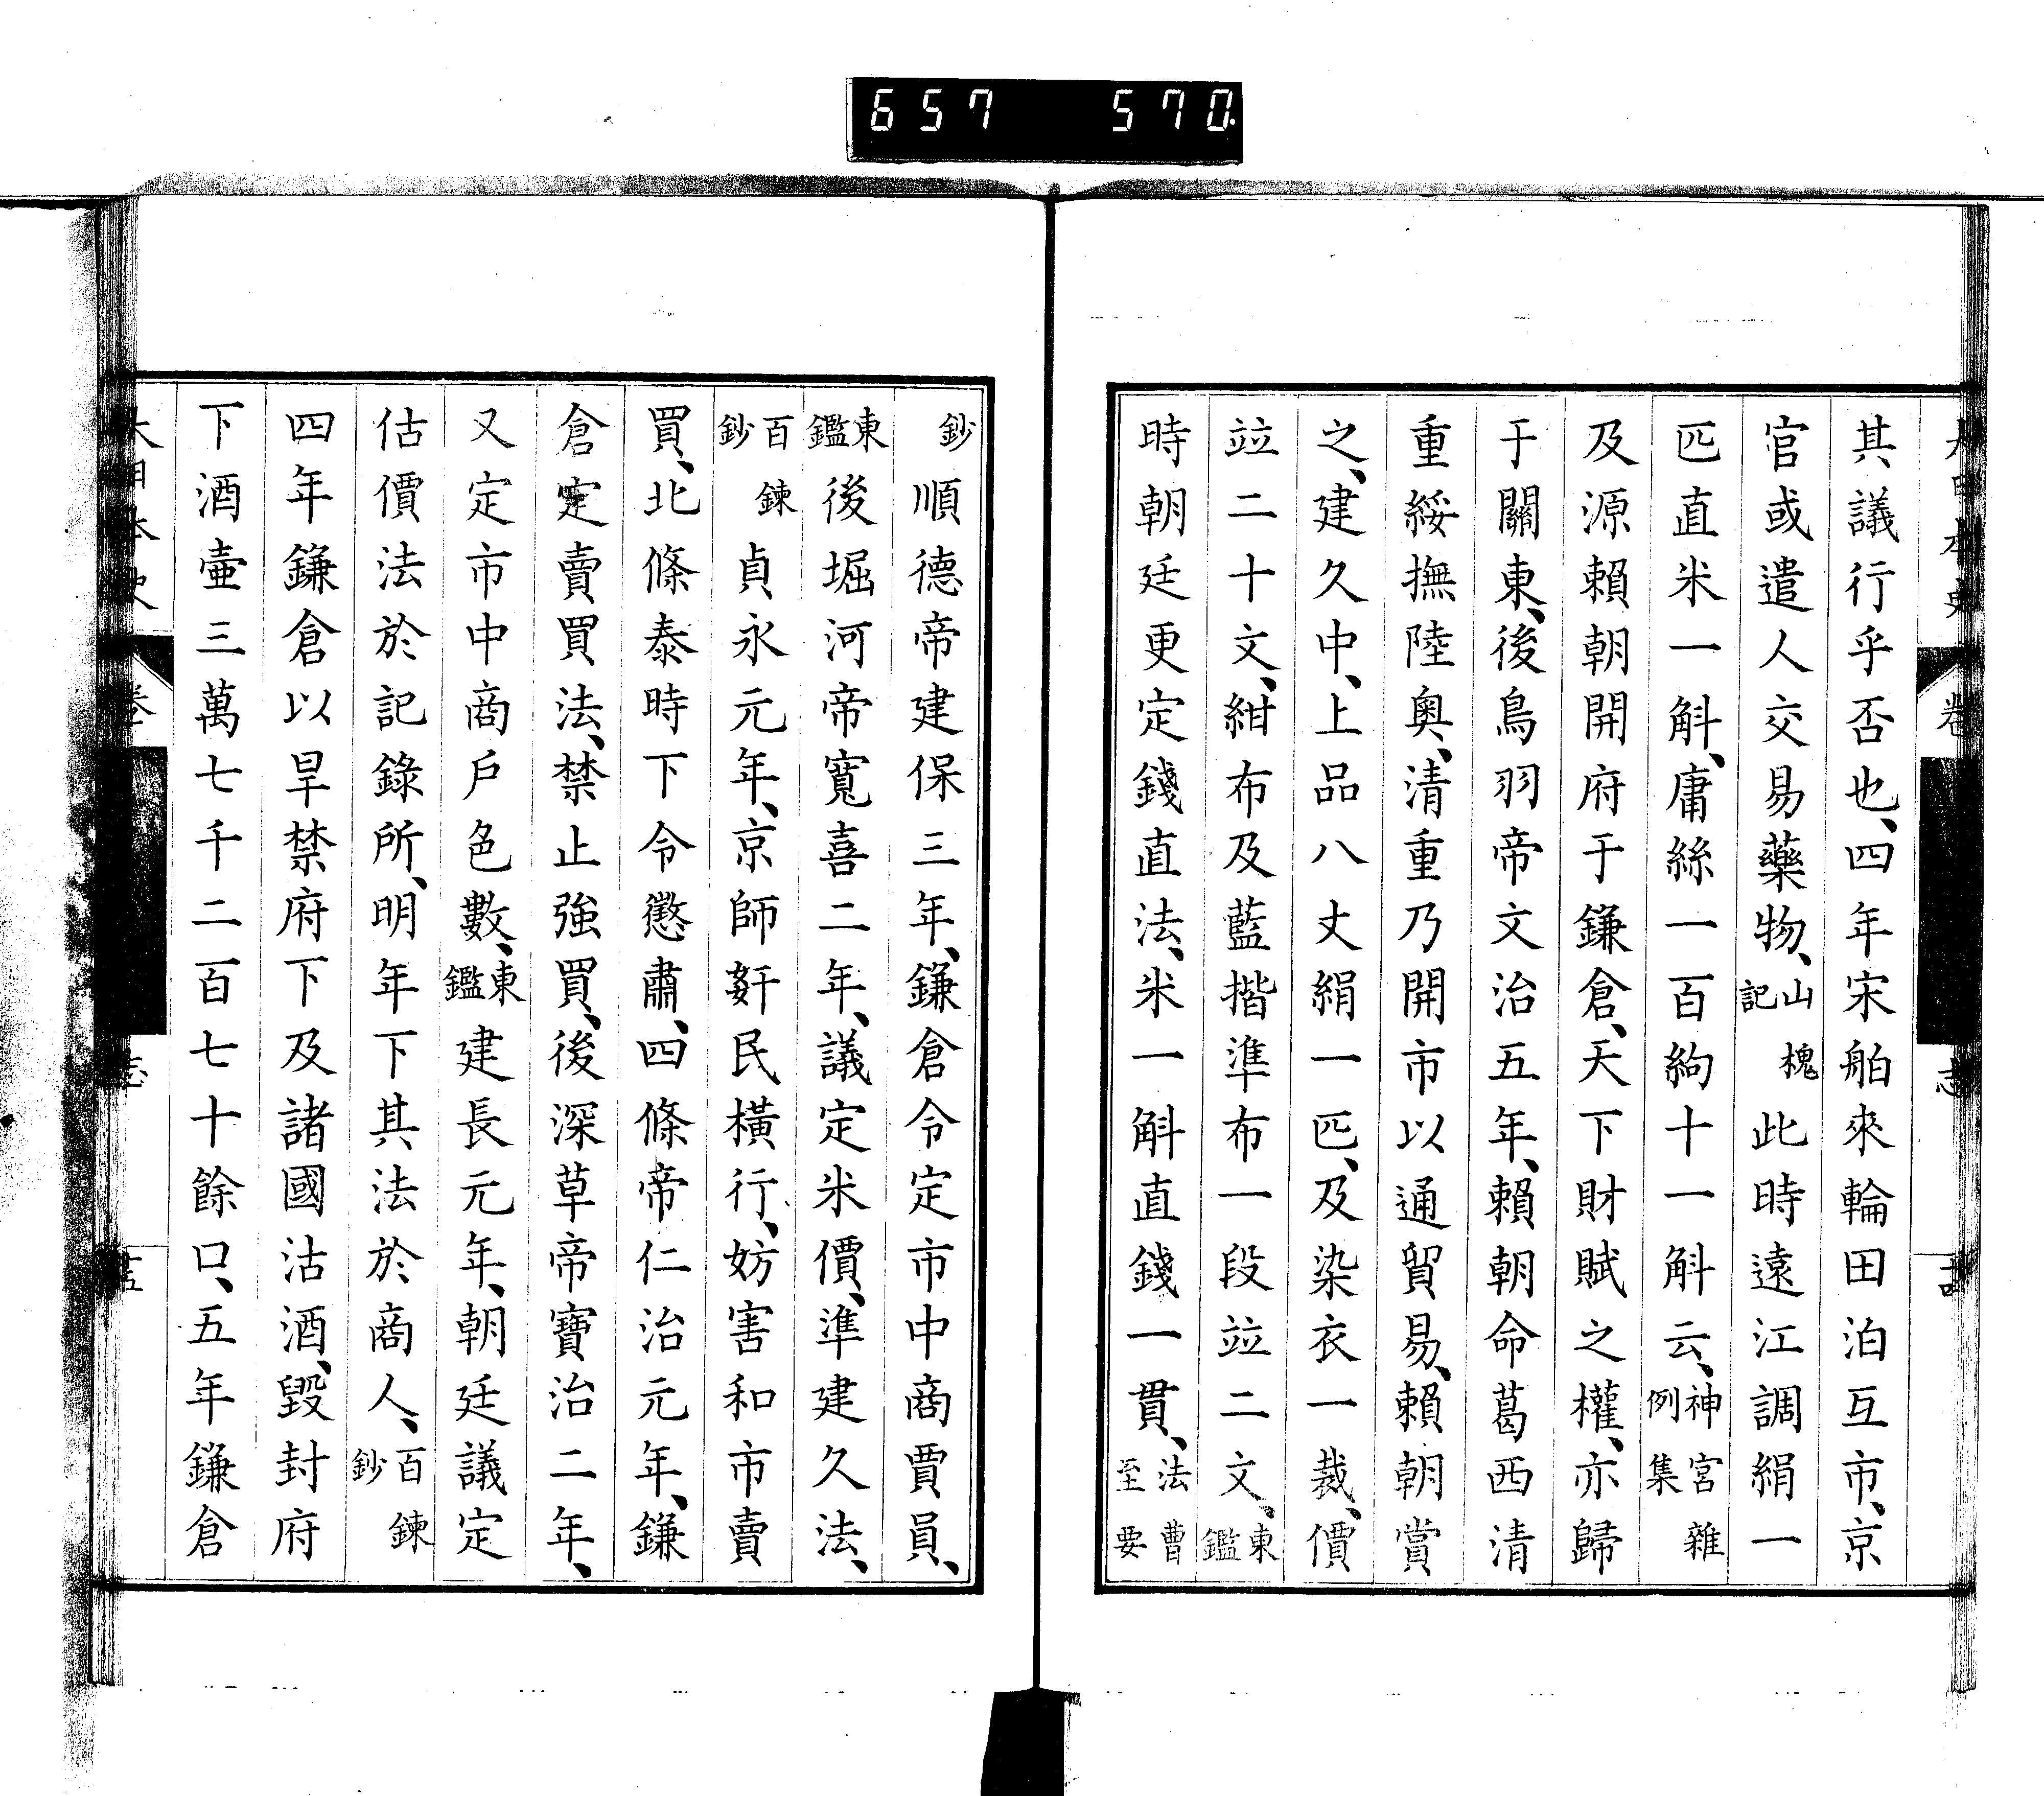 657 570
大日本史 卷 志 十四
其議行乎否也、四年宋舶來輪田泊互市、京
官或遣人交易藥物、山槐記此時遠江調絹一
匹直米一斛、庸絲一百絇十一斛云、神宮雜例集
及源賴朝開府于鎌倉、天下財賦之權、亦歸
于關東、後鳥羽帝文治五年、賴朝命葛西清
重綏撫陸奧、清重乃開市以通貿易、賴朝賞
之、建久中、上品八丈絹一匹、及染衣一裁、價
竝二十文、紺布及藍揩準布一段竝二文、東鑑
時朝廷更定錢直法、米一斛直錢一貫、法曹至要
鈔順德帝建保三年、鎌倉令定市中商賈員、
東鑑後堀河帝寬喜二年、議定米價、準建久法、
百鍊鈔貞永元年、京師姧民橫行、妨害和市賣
買、北條泰時下令懲肅、四條帝仁治元年、鎌
倉定賣買法、禁止強買、後深草帝寶治二年、
又定市中商戶色數、東鑑建長元年、朝廷議定
估價法於記錄所、明年下其法於商人、百鍊鈔
四年鎌倉以旱禁府下及諸國沽酒、毀封府
下酒壷三萬七千二百七十餘口、五年鎌倉
大日本史 卷 志 十五